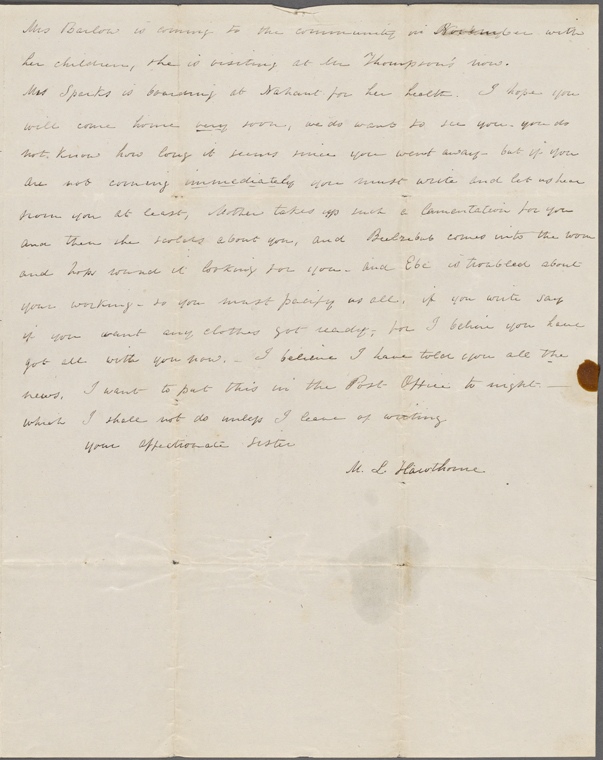 Mrs Barlow is coming to the community in November with
her children, she is visiting at Mr Thompson's now.
Mrs Sparks is boarding at Nahant for her health. I hope you
will come home very soon, we do want to see you. you do
not know how long it seems since you went away – but if you
are not coming immediately you must write and let us hear
from you at least, Mother takes up such a lamentation for you
and then she scolds about you, and Beelzebub comes into the room
and hops round it looking for you – and Ebe is troubled about
your working – so you must pacify us all, if you write say
if you want any clothes got ready, for I believe you have
got all with you now. – I believe I have told you all the
news, I want to put this in the Post Office to night –
which I shall not do unless I leave of writing
your affectionate sister
M. L Hawthorne